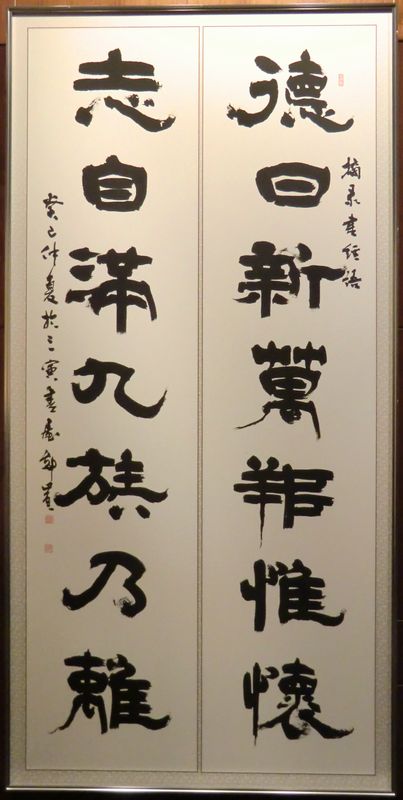 德日新萬邦惟懷
摘录書經語
志自滿九族乃離
癸巳仲夏於三寅書屋